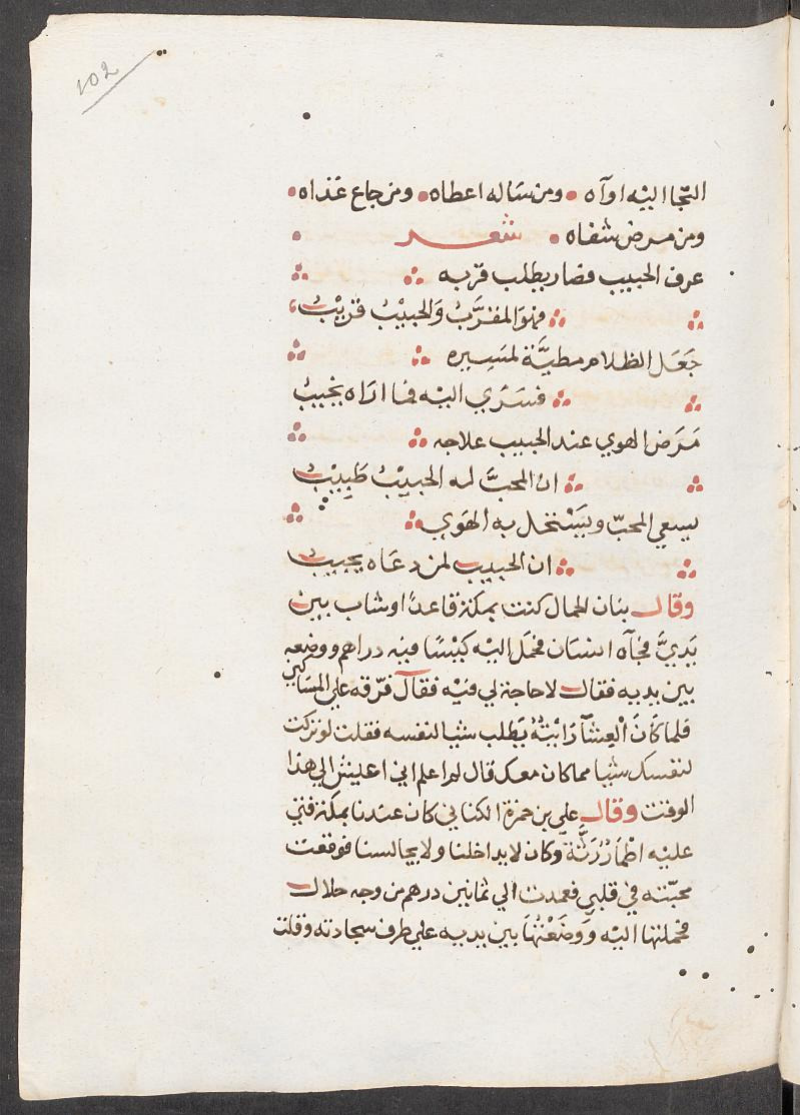 102
التجا اليه اوآه • ومن ساله اعطاه • ومن جاع غذاه •
ومن مرض شفاه • شعر •
عرف الحبيب فصار يطلب قربه
فهو المقرَّبُ وَالحبيْبُ قريْبُ
جَعَل الظلام مطيَّة لمسِيره
فسَرَي اليْه فما ارَاه يخيبُ
مَرَض الهوي عند الحبيب علاجه
ان المحبَّ له الحبِيْبُ طَبِيْبُ
يسعي المحبّ ويَسْتحل به الهَوي
ان الحبيب لمن دعَاه يجيبُ
وقال بنان الحمال كنت بمكة قاعدًا وشاب بين
يَدِيَّ فجآه انسان فحمَل اليْه كيْسًا فيْه دراهم ووضعه
بين يديه فقال لا حاجة لي فيْه فقال فرّقه علي المسَاكين
فلما كَانَ الْعِشآ رَايتُهُ يَطلب شيا لنفسه فقلت لو تركت
لنفسك شيا مما كان معك قال لم اعلم اني اعيش الي هذا
الوقت وقال علي بن حمزة الكناني كان عندنا بمكة فتي
عليْه اطْمَارٌ رَثَّةٌ وكان لا يداخلنا ولا يجالسنا فوقعت
محبّته في قلبي فعمدت الي ثمانين درهم من وجه حلال
فحملتها اليْه وَوَضَعْتُهَا بين يديه علي طرف سجادته وقلت